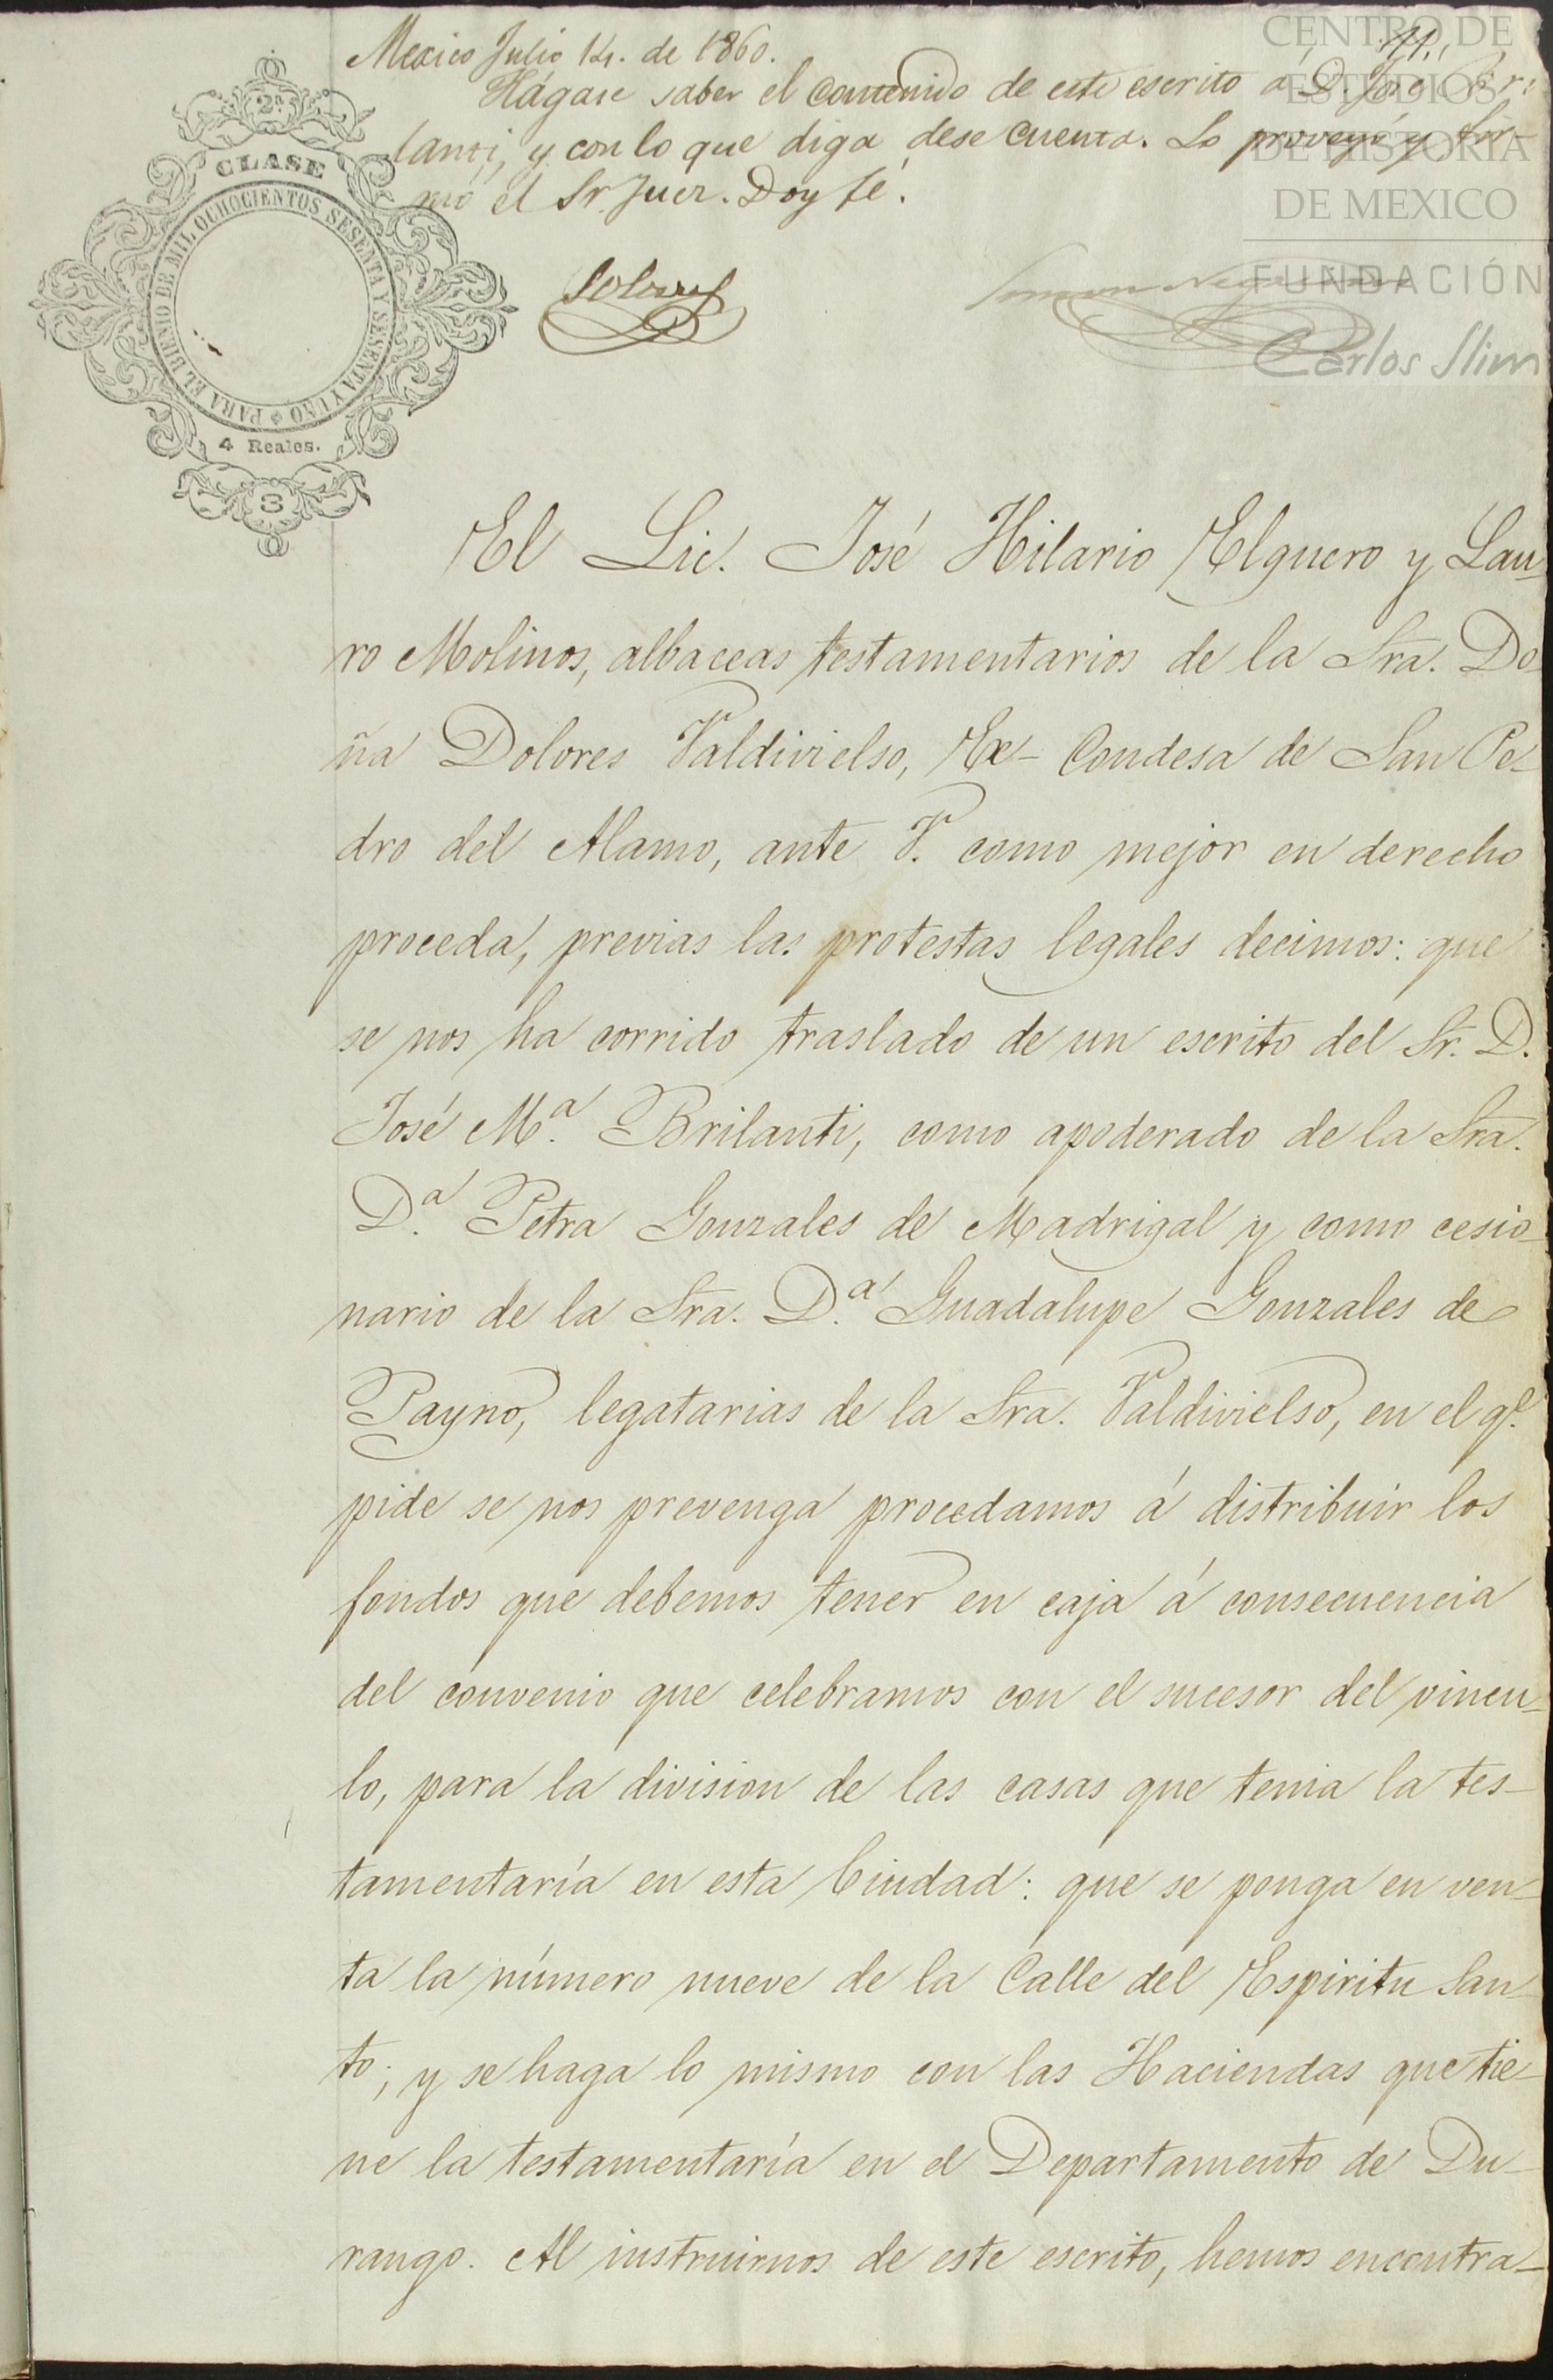 Mexico Julio 14. de 1860.
Hágase saber el contenido de este escrito á D. José Bri
lanti, y con lo que diga dese cuenta. Lo proveyó y fir-
mó el Sr. Juez. Doy fé.
CENTRO DE
ESTUDIOS
DE HISTORIA
DE MEXICO
FUNDACIÓN
Carlos Slim
2ª
CLASE
PARA EL BIENIO DE MIL OCHOCIENTOS SESENTA Y SESENTA Y UNO
4 Reales.
3
El Lic. José Hilario Elguero y Lau-
ro Molinos, albaceas testamentarios de la Sra. Do-
ña Dolores Valdivielso, Ex-Condesa de San Pe-
dro del Alamo, ante V. como mejor en derecho
proceda, previas las protestas legales decimos: que
se nos ha corrido traslado de un escrito del Sr. D.
José Mª. Brilanti, como apoderado de la Sra.
Dª. Petra Gonzales de Madrigal y como cesio-
nario de la Sra. Dª. Guadalupe Gonzales de
Payno, legatarias de la Sra. Valdivielso, en el qe.
pide se nos prevenga procedamos á distribuir los
fondos que debemos tener en caja á consecuencia
del convenio que celebramos con el sucesor del vincu-
lo, para la division de las casas que tenia la tes-
tamentaría en esta Ciudad: que se ponga en ven-
ta la número nueve de la Calle del Espiritu San-
to; y se haga lo mismo con las Haciendas que tie-
ne la testamentaría en el Departamento de Du-
rango. Al instruirnos de este escrito, hemos encontra-